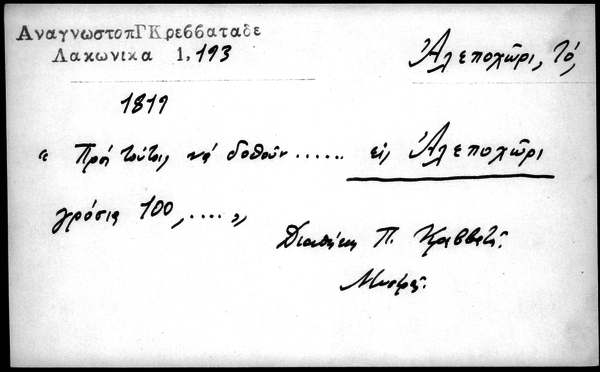 ΑναγνωστοπΓΚρεββαταδε
Λακωνικα 1, 193
Ἀλεποχῶρι, τό,
1819
« Πρὸς τούτοις νὰ δοθοῦν ...... εἰς Ἀλεποχῶρι
γρόσια 100, .... »,
Διαθήκη Π. Κρεββατᾶ.
Μυστρᾶς.